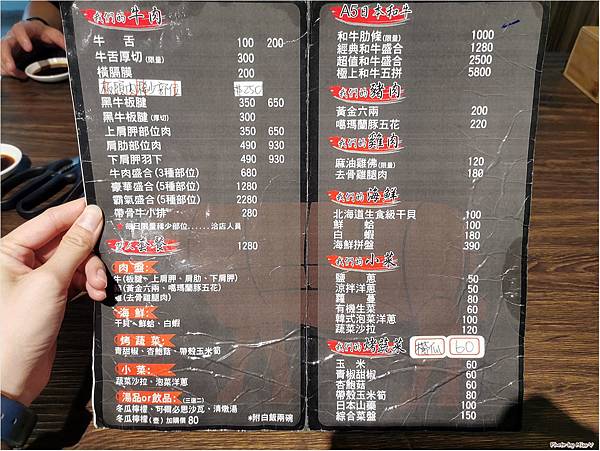 我們的 牛肉
牛 舌 100 200
牛舌厚切(限量) 300
橫膈膜 200
$250
黑牛板腱 350 650
黑牛板腱(厚切) 300
上肩胛部位肉 350 650
肋部位肉 490 930
下肩胛羽下 490 930
牛肉盛合(3種部位) 680
豪華盛合(5種部位) 1280
霸氣盛合(5種部位) 2280
帶骨牛小排 280
★每日限量稀少部位......洽店人員
雙人套餐 1280
肉 盤:
牛(板腱、上肩胛、肩肋、下肩胛)
(黃金六兩、噶瑪蘭豚五花)
(去骨雞腿肉)
海 鮮:
干貝、鮮蛤、白蝦
烤 蔬 菜:
青甜椒、杏鮑菇、帶殼玉米筍
小 菜:
蔬菜沙拉、泡菜洋蔥
湯品or飲品:(三選二)
冬瓜檸檬、可爾必思沙瓦、清燉湯
冬瓜檸檬(壺)加購價 80
*附白飯兩碗
A5日本和牛
和牛肋條(限量) 1000
經典和牛盛合 1280
超值和牛盛合 2500
極上和牛五拼 5800
我們的 豬肉
黃金六兩 200
噶瑪蘭豚五花 220
我們的 雞肉
麻油雞佛(限量) 120
去骨雞腿肉 180
我們的 海鮮
北海道生食級干貝 100
鮮 蛤 100
白 蝦 180
海鮮拼盤 390
我們的 小菜
鹽 蔥 50
涼拌洋蔥 50
蘿 蔔 80
有機生菜 60
韓式泡菜洋蔥 100
蔬菜沙拉 120
我們的 烤蔬菜
60
玉 米 60
青椒甜椒 60
杏鮑菇 60
帶殼玉米筍 80
日本山藥 100
綜合菜盤 150
Photo by Miss V